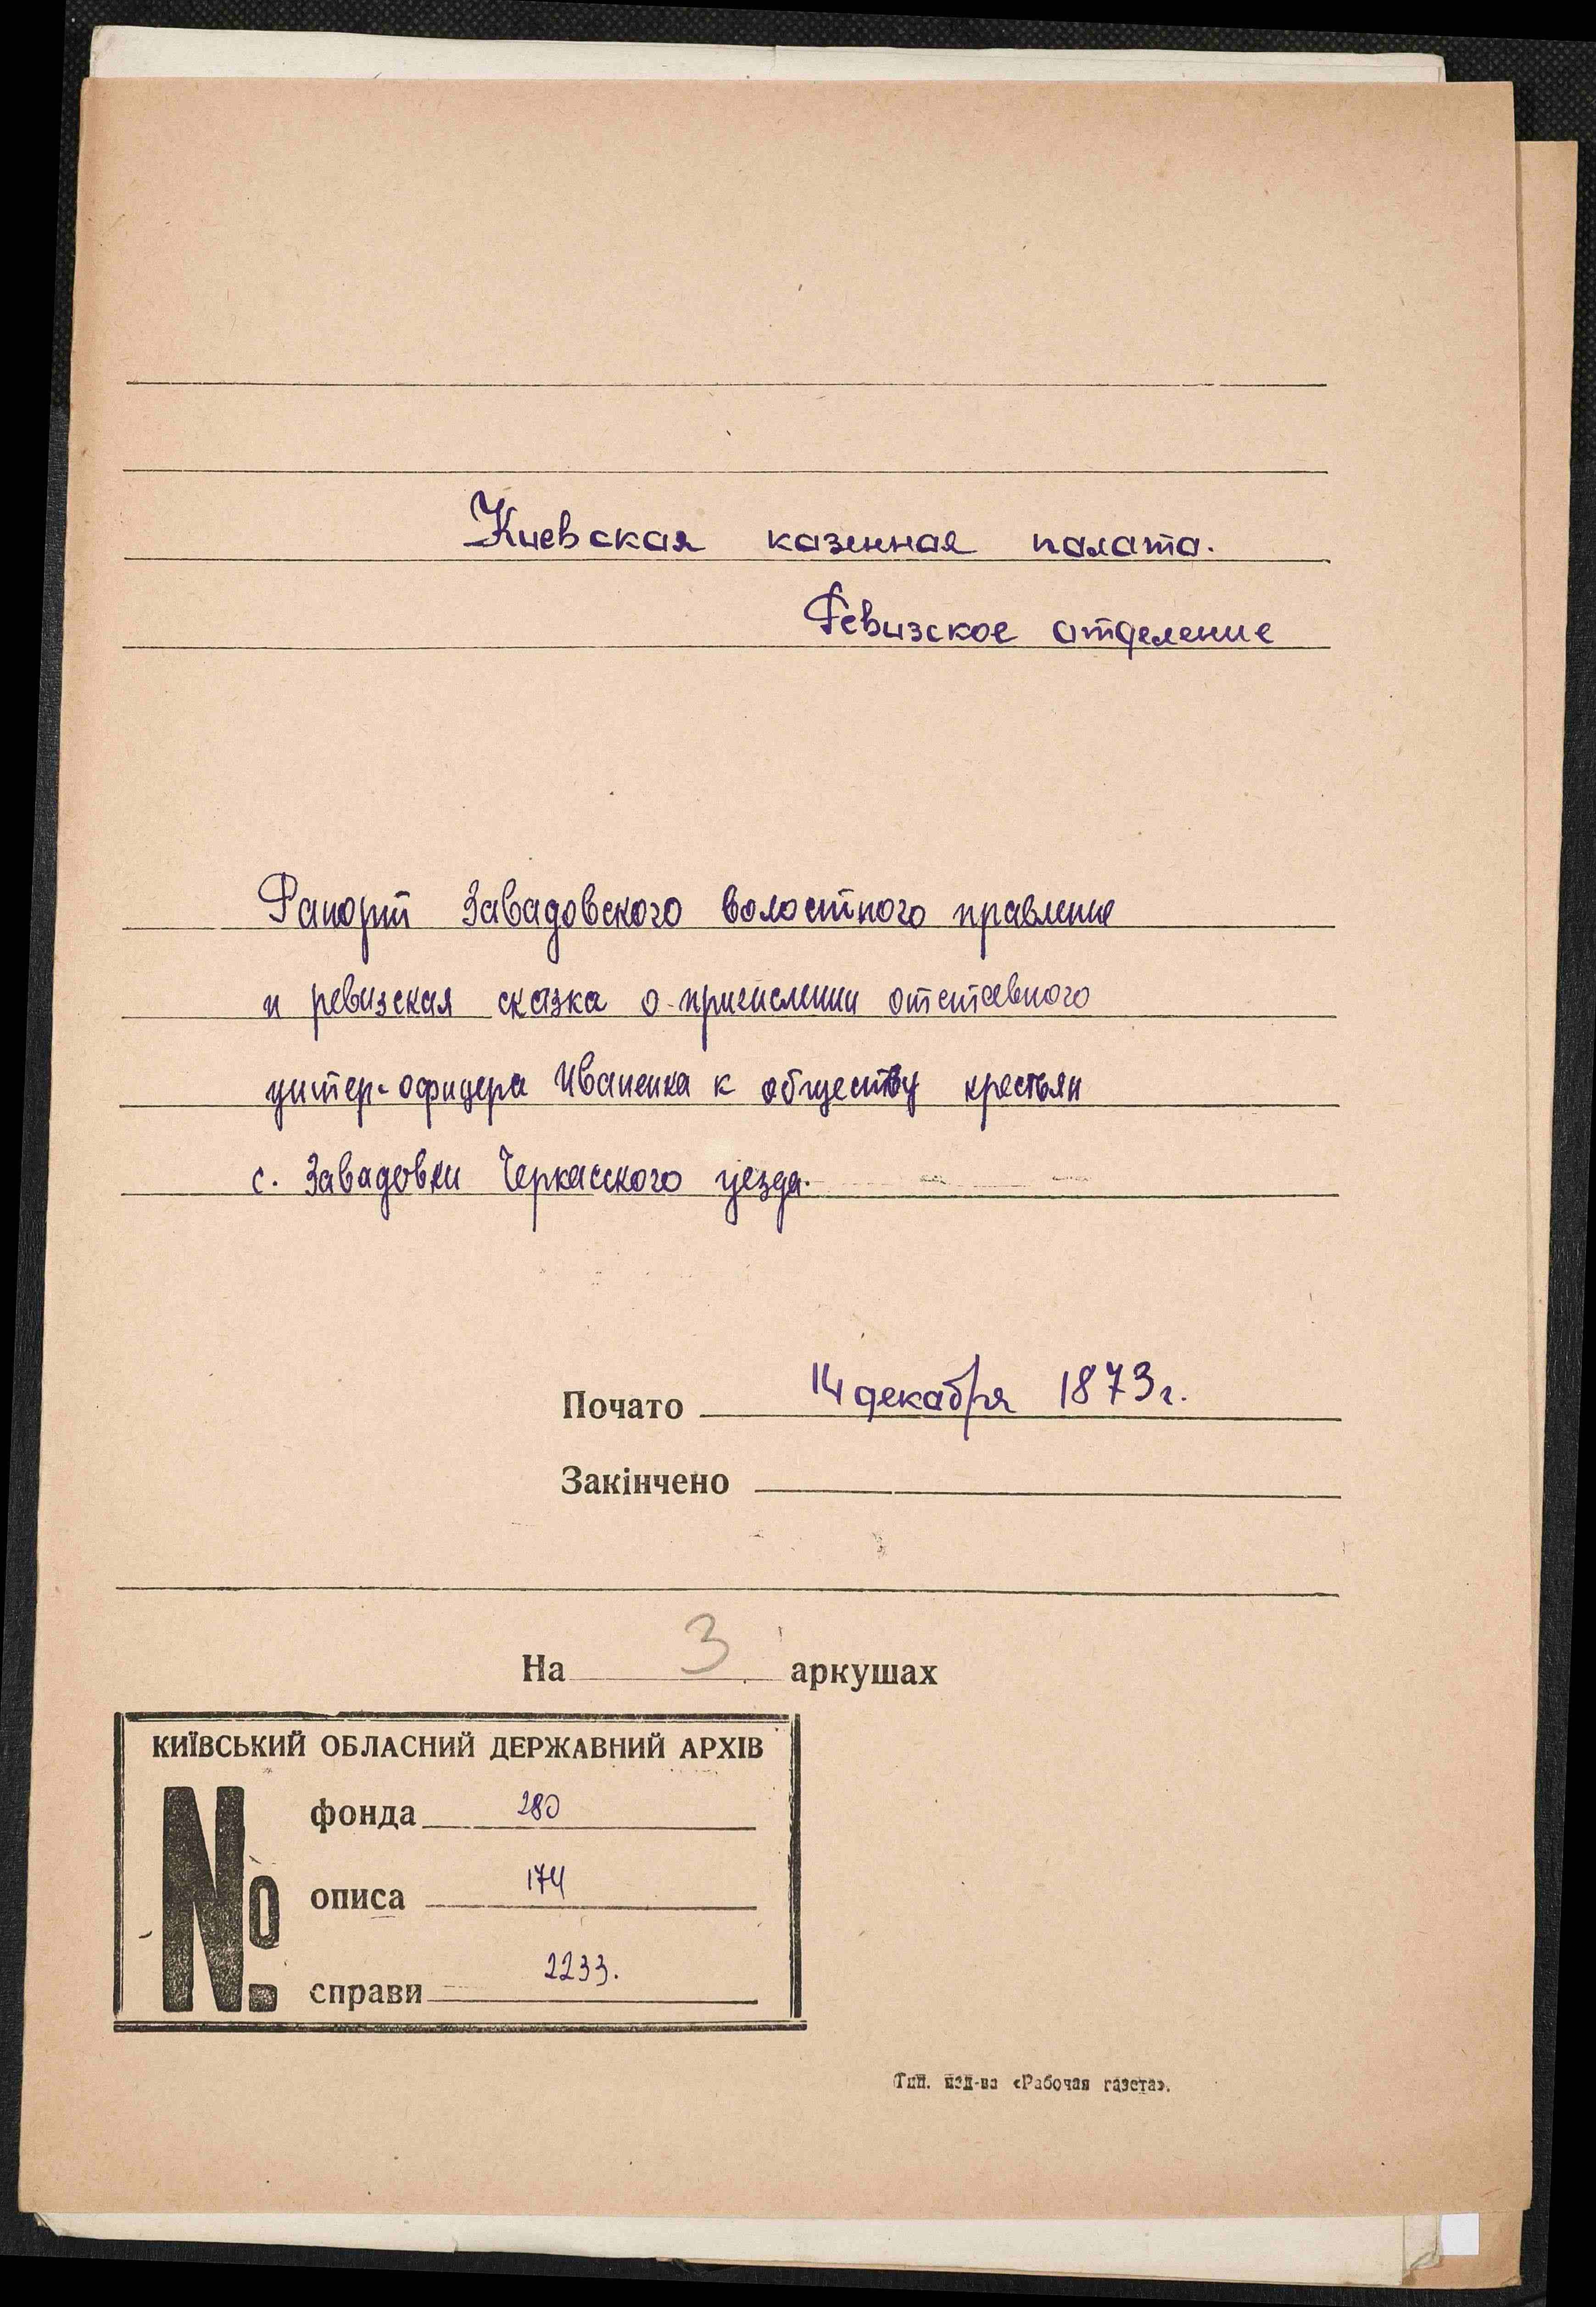 Киевская казенная палата.
Ревизское отделение
Рапорт Завадовского волостного правления
и ревизская сказка о причислении отставного
унтер-офицера Иваненка к обществу крестьян
с. Завадовки Черкасского уезда.
Почато 14 декабря 1873 г.
Закінчено
На 3 аркушах
КИЇВСЬКИЙ ОБЛАСНИЙ ДЕРЖАВНИЙ АРХІВ
№
фонда 280
описа 174
справи 2233.
Тип. изд-ва «Рабочая газета».